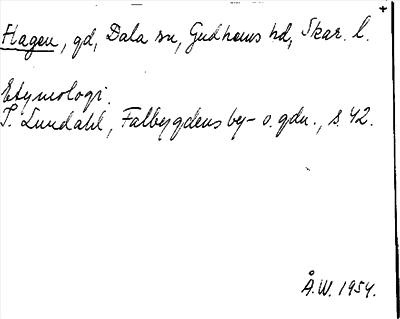 Hagen, gd, Dala sn, Gudhems hd, Skar. l.
Etymologi.
I. Lundahl, Falbygdens by- o. gdn., s. 42.
Å.W. 1954.